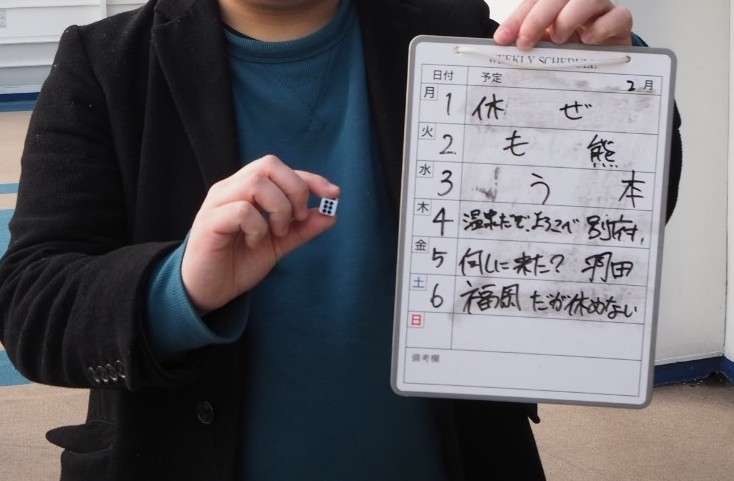 WEEKLY SCHEDULE
日付 予定 2月
月 1 休 ぜ
火 2 も 熊
水 3 う 本
木 4 温泉だぞ、よろこべ 別府、
金 5 何しに来た? 羽田
土 6 福岡 だが休めない
日
備考欄